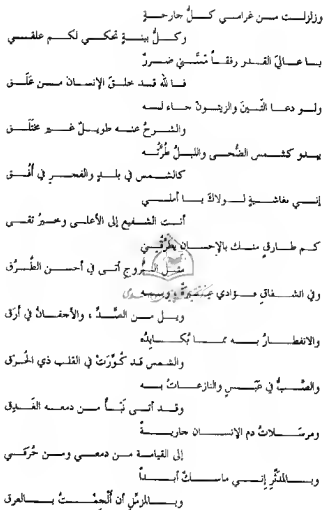 وزلزلت من غرامي كلُّ جارحةٍ
وكلُّ بينةٍ تحكي لكم علقسي
يا عاليَ القدر رفقاً مسَّني ضررٌ
فالله قد خلقَ الإنسان من عَلَقِ
ولو دعا التّين والزيتونُ جاء لسه
والشرحُ عنه طويلٌ غير مختَلَق
يبدو كشمس الضُّحى والليلُ طُرَّتُه
كالشمس في بلدٍ والفجرِ في أُفُق
إنسي بغاشيةٍ لولاك يا أملي
أنت الشفيع إلى الأعلى وخيرُ تقى
كم طارقٍ منك بالإحسان يطرُقُني
مثل البُروج أتى في أحسن الطُّرق
وفي الشقاق فؤادي
ويل من الصدِّ ، والأجفانُ في أرَق
والانفطارُ به مما يُكابدُه
والشمس قد كُوِّرَتْ في القلب ذي الحُرَق
والصَّبُّ في عَبَسٍ والنازعاتُ به
وقد أتى نَبَأٌ من دمعه الغَدِق
ومرسَلاتُ دم الإنسان جاريةٌ
إلى القيامة من دمعي ومن حُرَقي
وبالمدَّثِّر إنسي ماسكٌ أبداً
وبالمزمِّل أن أُلْجِمْتُ بالعرق